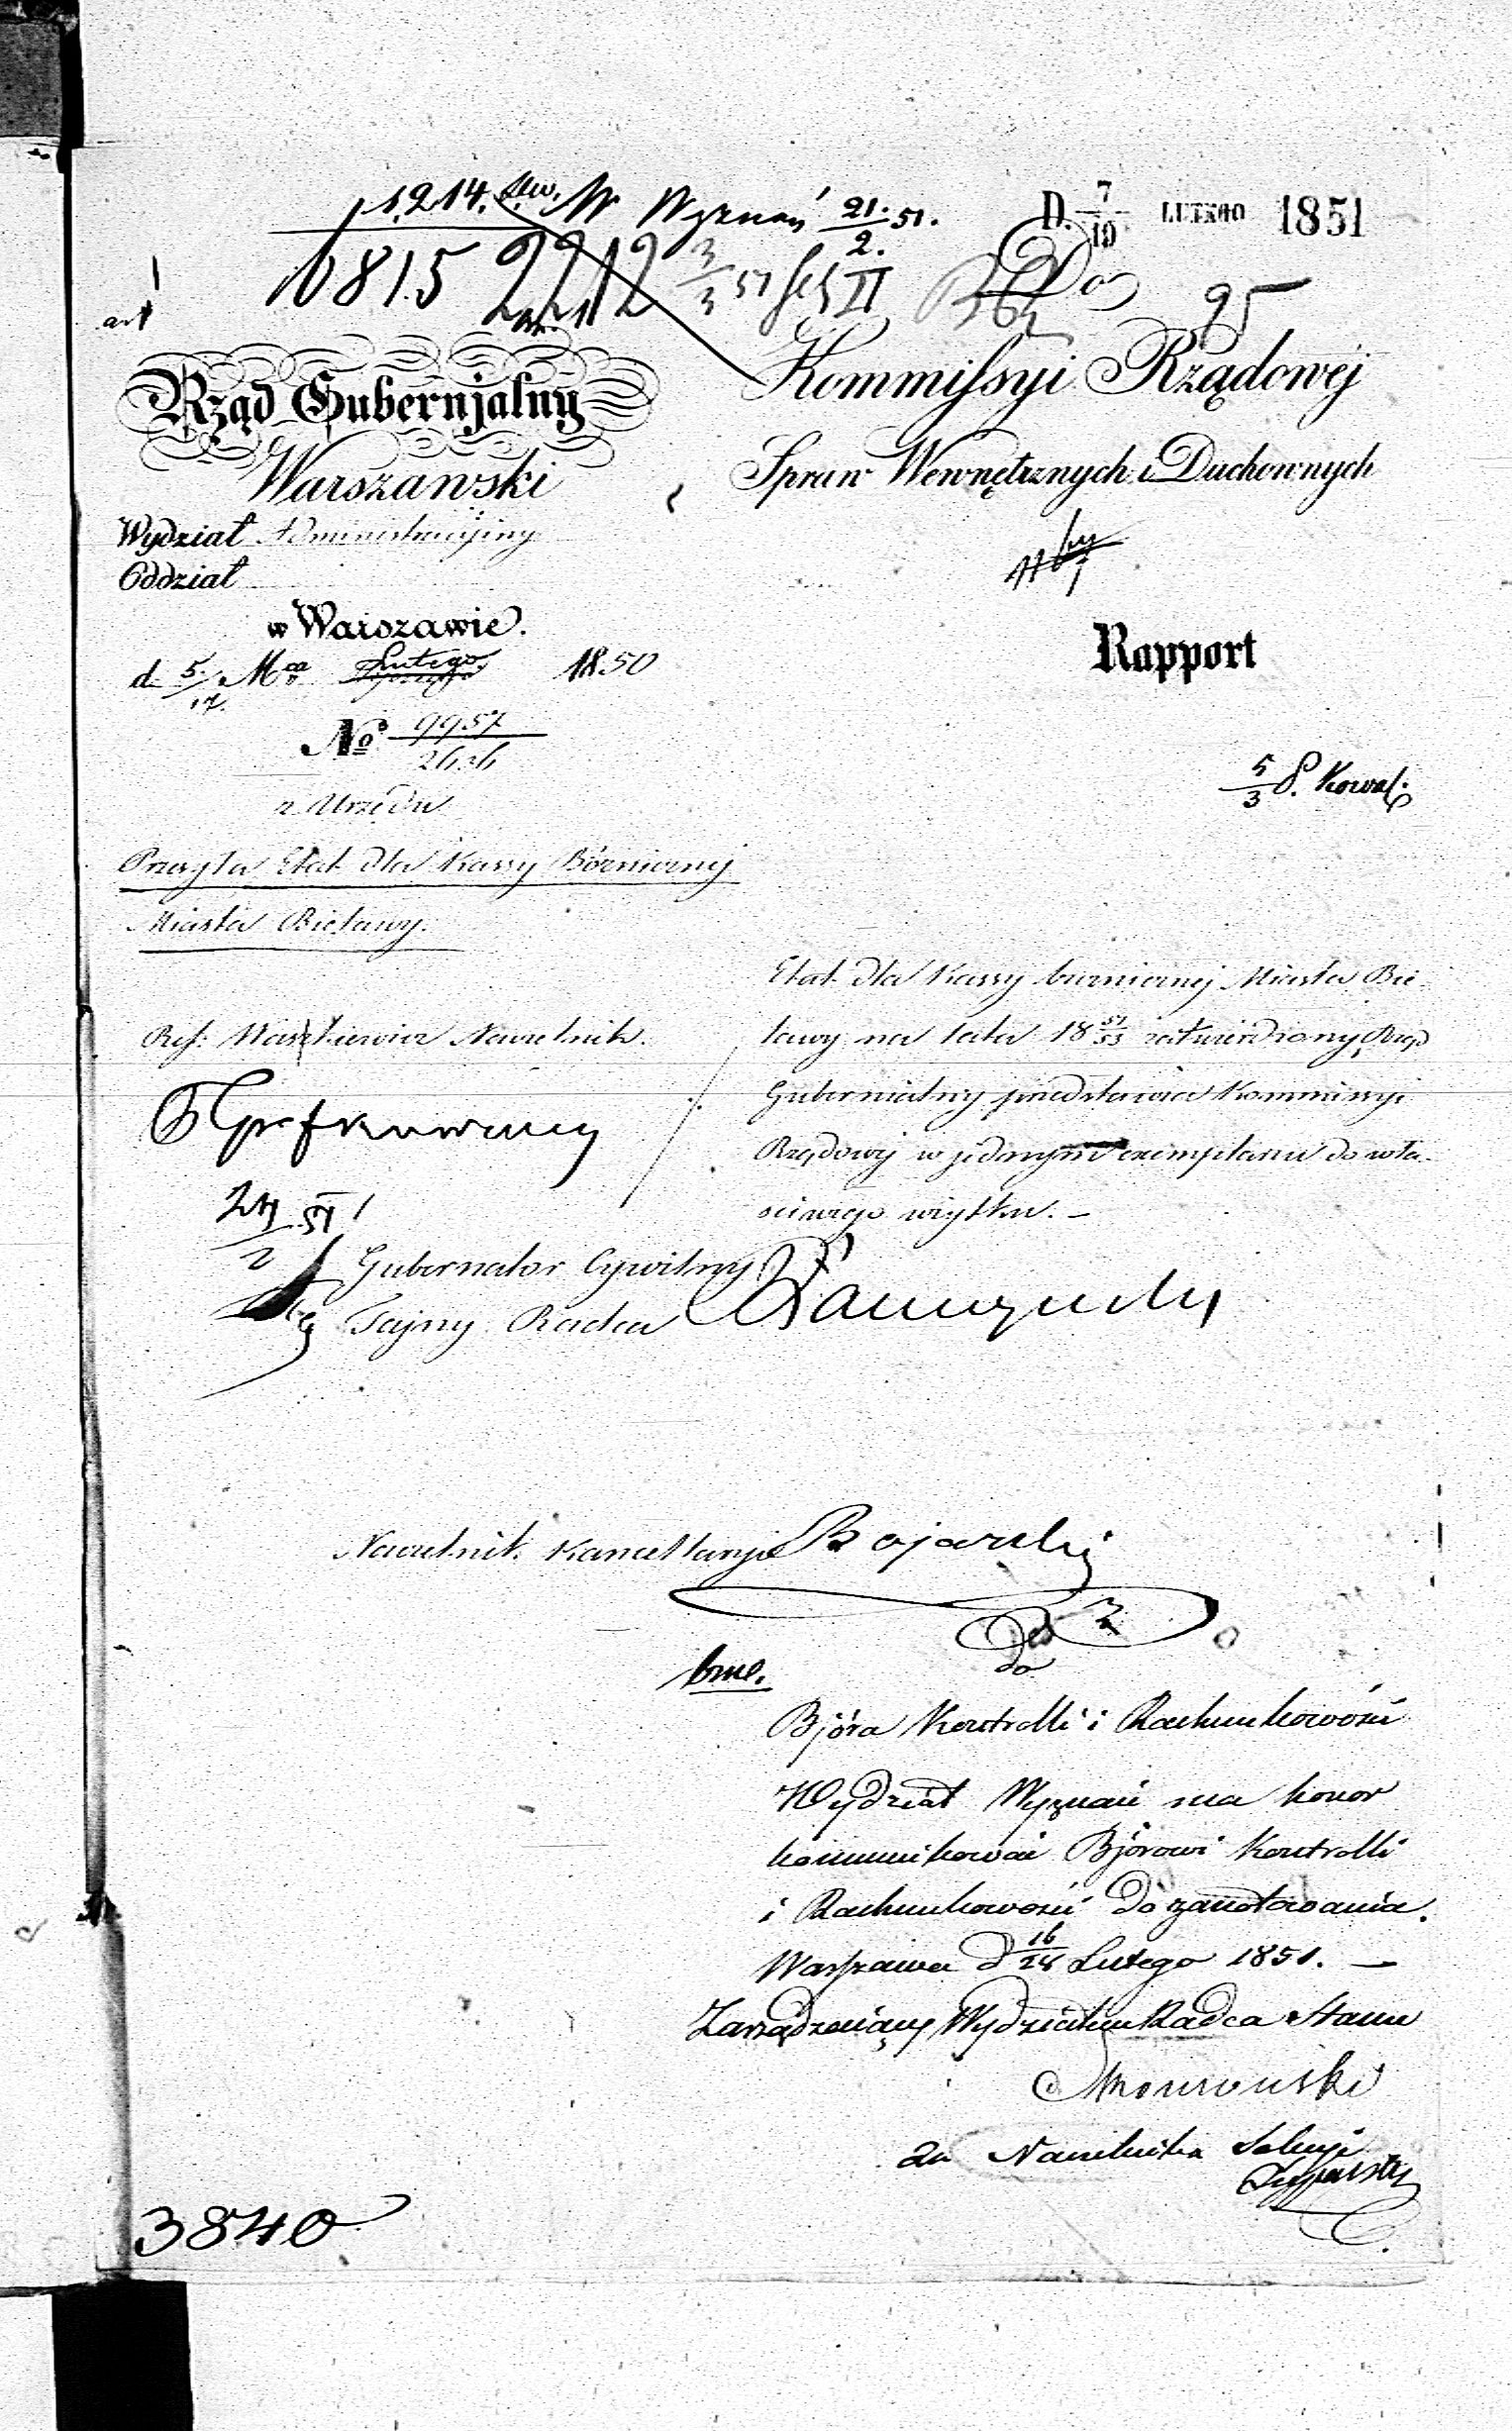 1214. Wyznań 21/2. 51.
D. 7/19 LUTEGO 1851
10815 2212 3/3 51
Do
95
Rząd Gubernjalny
Warszawski
Kommissyi Rządowéj
Spraw Wewnętrznych i Duchownych
Wydział Administracyjny
Oddział
w Warszawie.
d. 5/17. Mca Lutego 1850
Rapport
No 9957/2636
z Urzędu
5/3 P. Kowal.
Przesyła Etat dla Kassy Bóżnicznej
Miasta Bielawy.
Ref: Naczelnik.
Etat dla Kassy bużnicznej Miasta Bie-
ławy na lata 18 51/53 zatwierdzony Rząd
Gubernialny przedstawia Kommissyi
Rządowej w jednym exemplarzu do wła-
ściwego użytku. –
24/2 51
Gubernator Cywilny
Tajny Radca
Naczelnik Kancellaryi Bojarski
Do
Bióra Kontrolli i Rachunkowości
Wydział Wyznań ma honor
kommunikować Biórowi Kontrolli
i Rachunkowości do zanotowania.
Warszawa d 16/28 Lutego 1851. –
Zarządzaiący Wydziałem Radca Stanu
za Naczelnika Sekcyi
3840